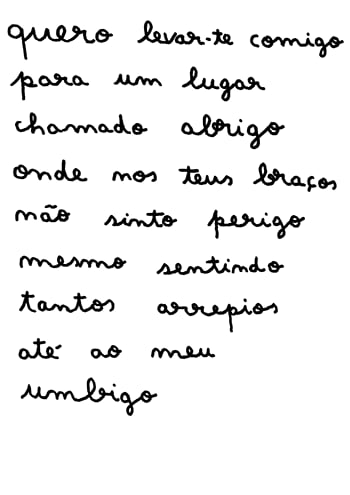 quero levar-te comigo
para um lugar
chamado abrigo
onde nos teus braços
não sinto perigo
mesmo sentindo
tantos arrepios
até ao meu
umbigo